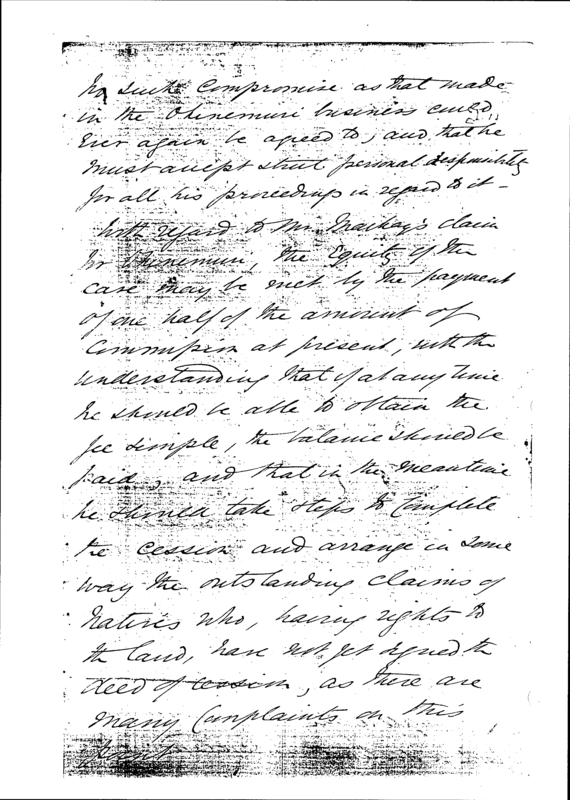 no such compromise as that made
in the Ohinemuri business could
ever again be agreed to, and that he
must accept strict personal responsibility
for all his proceedings in regard to it –
With regard to Mr. Mackay's claim
for Ohinemuri, the equity of the
case may be met by the payment
of one half of the amount of
Commission at present, with the
understanding that if at any time
he should be able to obtain the
fee simple, the balance should be
paid, and that in the meantime
he should take steps to complete
the cession and arrange in some
way the outstanding claims of
Natives who, having rights to
the land, have not yet signed the
deed of cession, as there are
many complaints on this